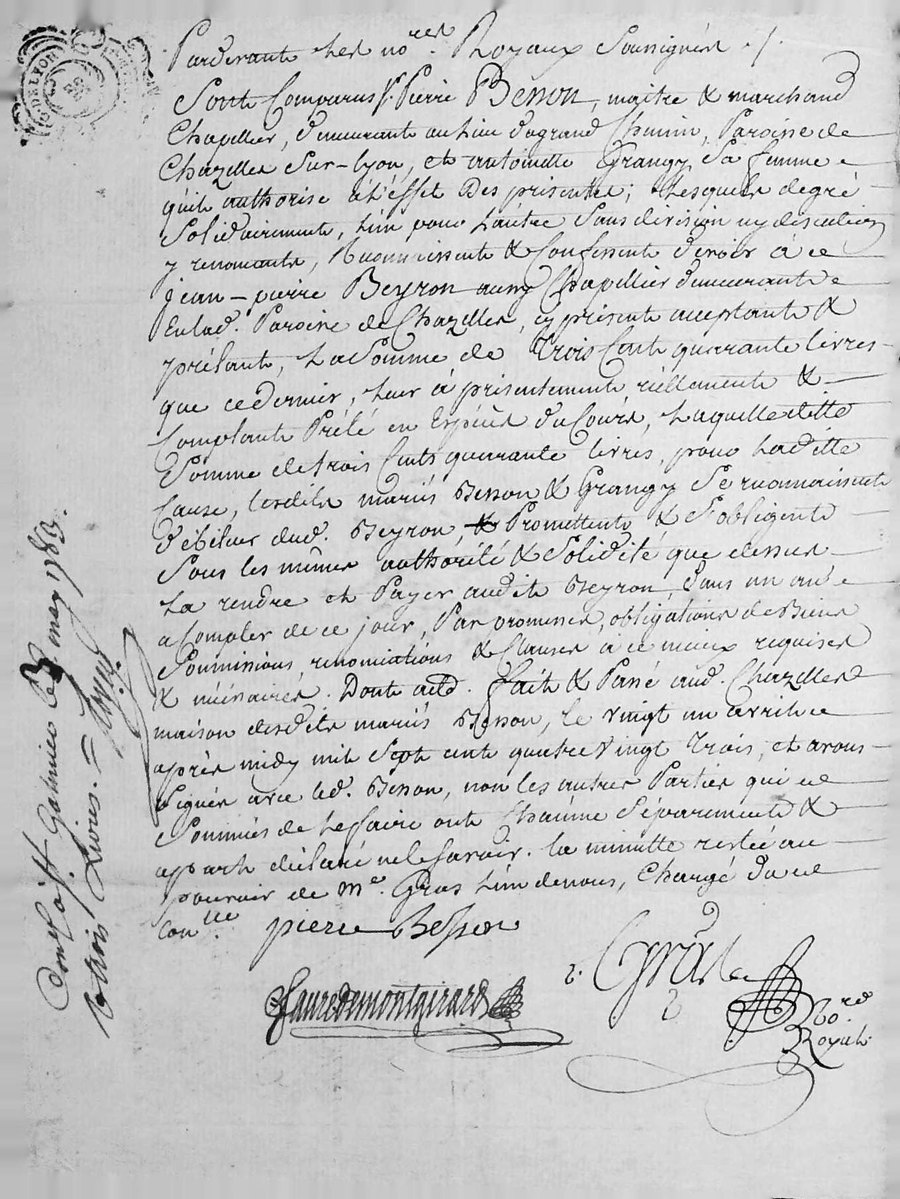 Pardevant les no.res Royaux Soussignés ./.
Sont Comparus s.r Pierre Besson, maitre & marchand
Chapellier, demeurant au lieu du grand Chemin, Paroisse de
Chazelles Sur-lyon, et antoinette Grangy, Sa femme
qu'il authorise a l'effet des presentes; Lesquels de gré
Solidairement, L'un pour L'autre Sans division ny discution
y renoncants, Reconnoissent & Confessent devoir à
Jean-pierre Beyron aussy Chapellier demeurant
En lad. Paroisse de Chazelles, cy present acceptant &
prêtant, La Somme de Trois Cent quarante livres
que ce dernier, Leur à présentement réellement &
Comptant Prêté en Espèces du Cours, Laquelle ditte
Somme de trois Cents quarante livres, pour Laditte
Cause, lesdits mariés Besson & Grangy Se reconnoissent
débiteurs dud. Beyron, & Promettent & S'obligent
Sous les mêmes authorité & Solidité que dessus
La rendre et Payer audit Beyron, dans un an
a Compter de ce jour, Par promesses, obligations de Biens
Soumissions, renonciations & Clauses à ce mieux requises
& nécéssaires. Dont acte. Fait & Passé aud. Chazelles
maison desdits mariés Besson, le vingt un avril
après midy mil Sept cent quatre vingt Trois, et avons
Signés avec led. Besson, non les autres Parties qui
Sommés de Le faire ont Chacune Séparément &
apart déclaré ne le Savoir. la minutte restée au
pouvoir de M.e Gras L'un de nous, Chargé du
Con.lle
pierre Besson
Faure de montgirard
Gras
No.re
Royal.
Con.lé à S.t Galmier le 3 may 1783.
R. trois Livres.
DE LYON